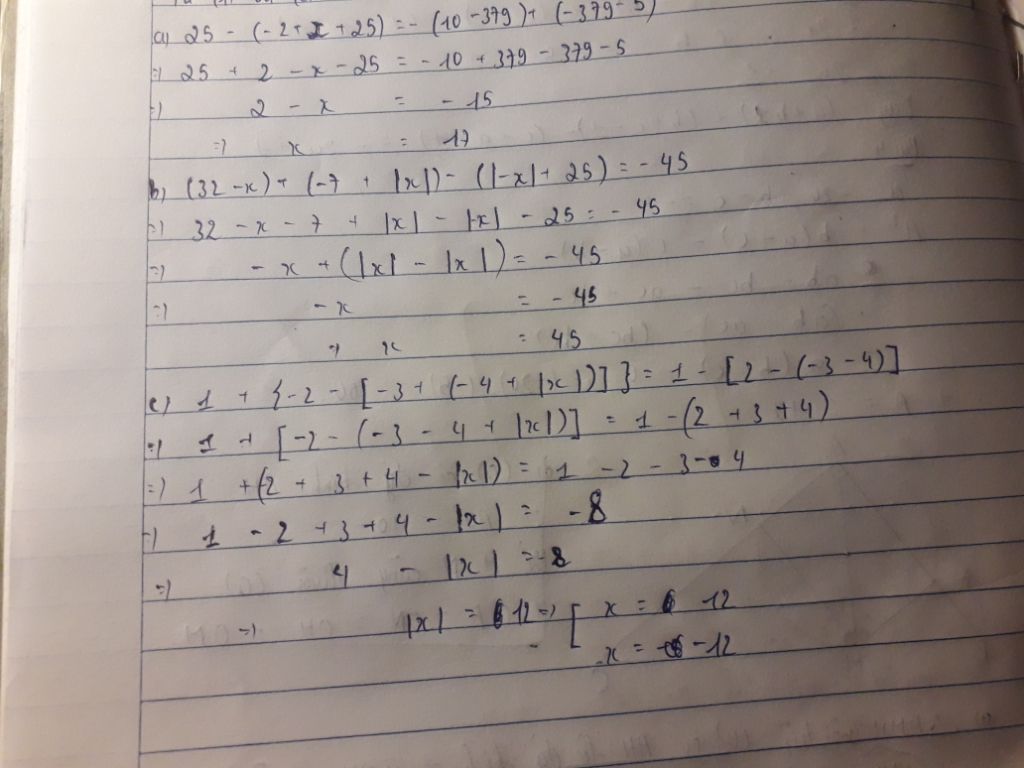 a) 25 - (-2 + x + 25) = - (10 - 379) + (-379 - 5)
=) 25 + 2 - x - 25 = - 10 + 379 - 379 - 5
=) 2 - x = - 15
=) x = 17
b) (32 - x) + (-7 + |x|) - (|-x| + 25) = - 45
=) 32 - x - 7 + |x| - |x| - 25 = - 45
=) - x + (|x| - |x|) = - 45
=) - x = - 45
=) x = 45
c) 1 + {-2 - [-3 + (-4 + |x|)]} = 1 - [2 - (-3 - 4)]
=) 1 + [-2 - (-3 - 4 + |x|)] = 1 - (2 + 3 + 4)
=) 1 + (2 + 3 + 4 - |x|) = 1 - 2 - 3 - 4
=) 1 - 2 + 3 + 4 - |x| = - 8
=) 4 - |x| = - 8
=) |x| = 12 =) [ x = 12
x = - 12